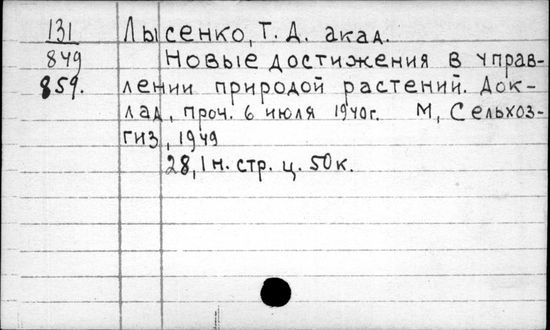 131 Лысенко, Т. Д. акад.
849 Новые достижения в управ-
859. лении природой растений. Док-
лад, проч. 6 июля 1940г. М, Сельхоз-
гиз, 1949
28, 1 н. стр. ц. 50к.